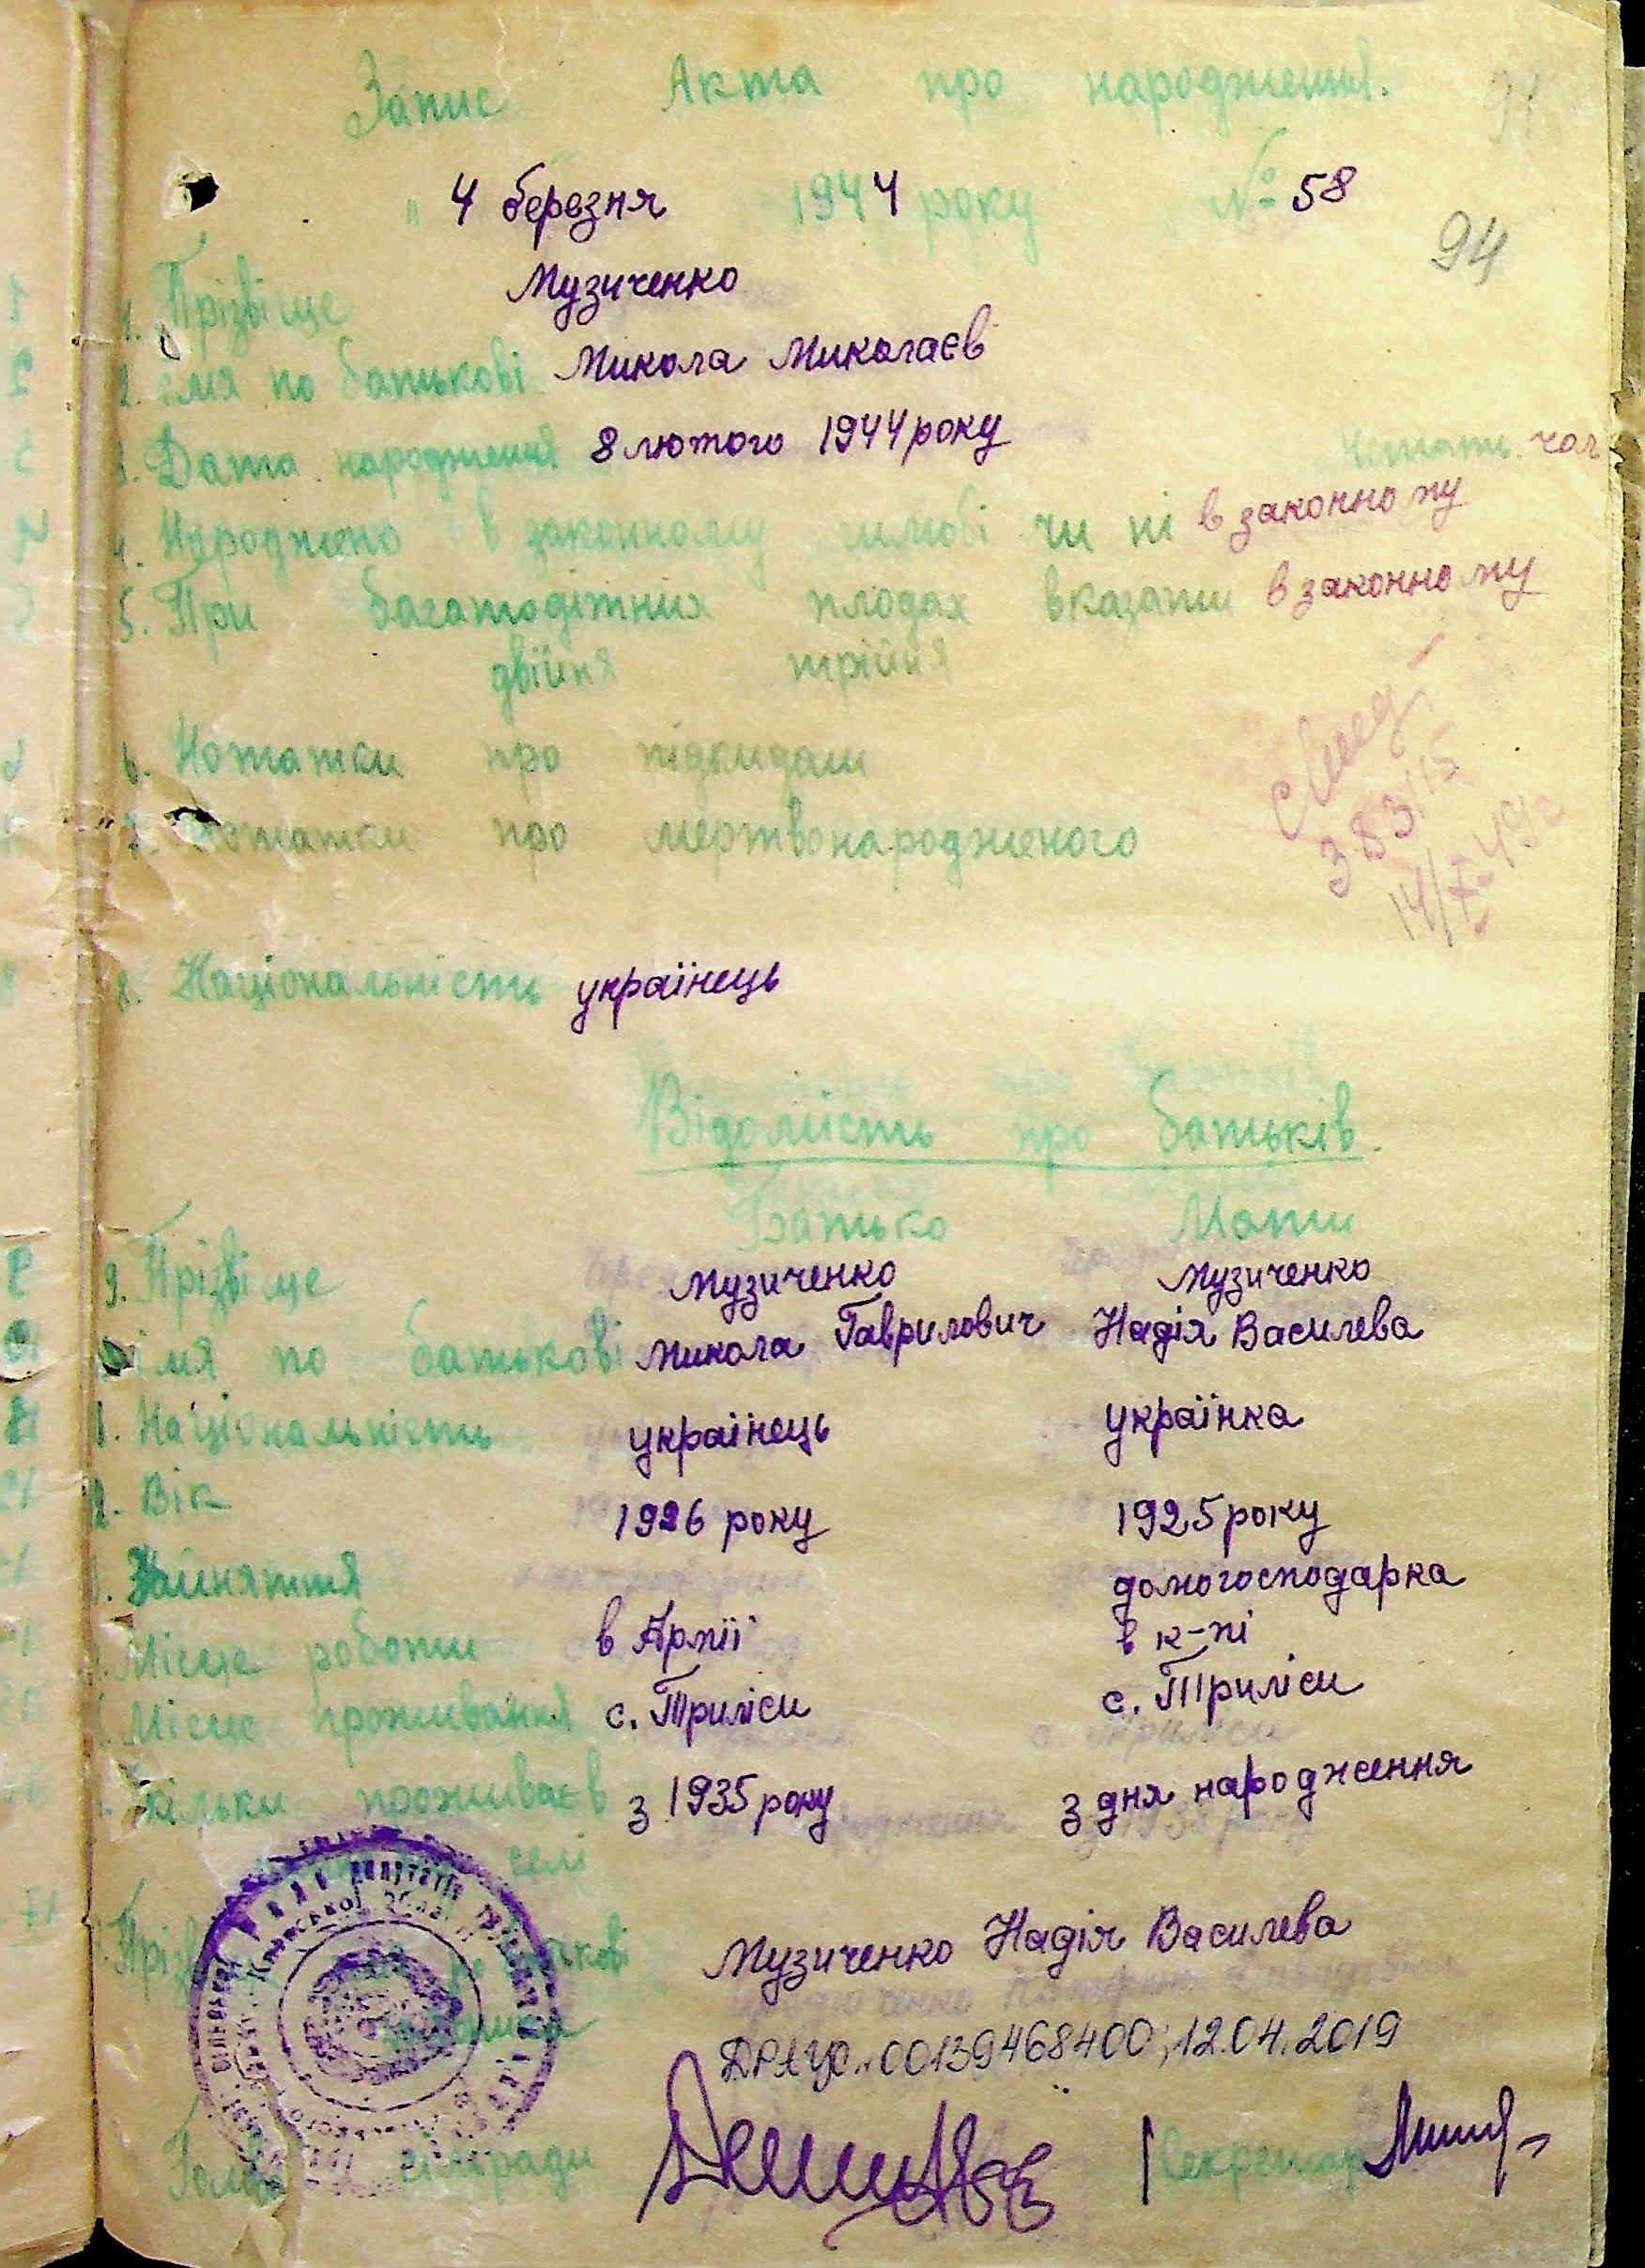 Запис Акта про народження.
94
" 4 березня 1944 року № 58
94
1. Прізвіще Музиченко
2. імя по батькові Микола Миколаєв
3. Дата народження 8 лютого 1944 року чол
4. Народжено в законному шлюбі чи ні в законному
5. При багатодітних плодах вказати в законному
двійня трійня
6. Нотатки про підкидаш
7. Нотатки про мертвонародженого
383115
14/X-49г
8. Національність українець
Відомість про батьків.
Батько Мати
9. Прізвіще Музиченко Музиченко
імя по батькові Микола Гаврилович Надія Василева
Національність українець українка
Вік 1926 року 1925 року
Займяття домогосподарка
Місце роботи в Армії в к-пі
Місце проживання с. Триліси с. Триліси
Скільки проживає в з 1935 року з дня народження
селі
Музиченко Надія Василева
00139468400; 12.04.2019
Голова сільради Секретар